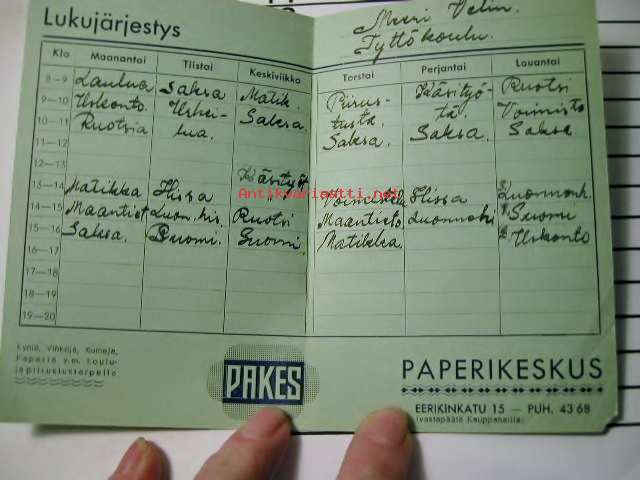 Lukujärjestys
Meeri Velin.
Tyttökoulu.
Klo Maanantai Tiistai Keskiviikko Torstai Perjantai Lauantai
8—9 Laulua Saksa Matik. Piirus- Käsityö- Ruotsi
9—10 Uskonto. Urhei- Saksa. tusta. tä. Voimisto
10—11 Ruotsia lua. Saksa. Saksa. Saksa
11—12
12—13 Käsityö
13—14 Matikka Hissa " Voimistelu Hissa Luonnonh.
14—15 Maantiet Luon.his. Ruotsi Maantieto Luonnohi Suomi
15—16 Saksa. Suomi. Suomi. Matikka Uskonto
16—17
17—18
18—19
19—20
Antikvariaatti.net
Kyniä, Vihkoja, Kumeja,
Paperia y.m. koulu-
ja piirustustarpeita
PAKES
PAPERIKESKUS
EERIKINKATU 15 — PUH. 43 68
(vastapäätä Kauppahallia)